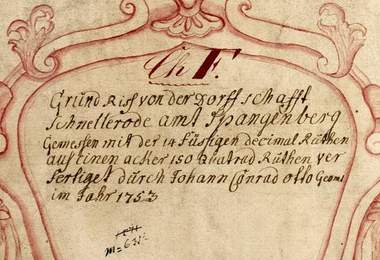 Ch F.
Grund Riss von der Dorffschafft
Schnellerode amt Spangenberg
Gemessen mit der 14 Füsigen decimal Ruthen
auf einen acker 150 Quatrad Ruthen ver
fertiget durch Johann Conrad Otto Geom:
im Jahr 1753